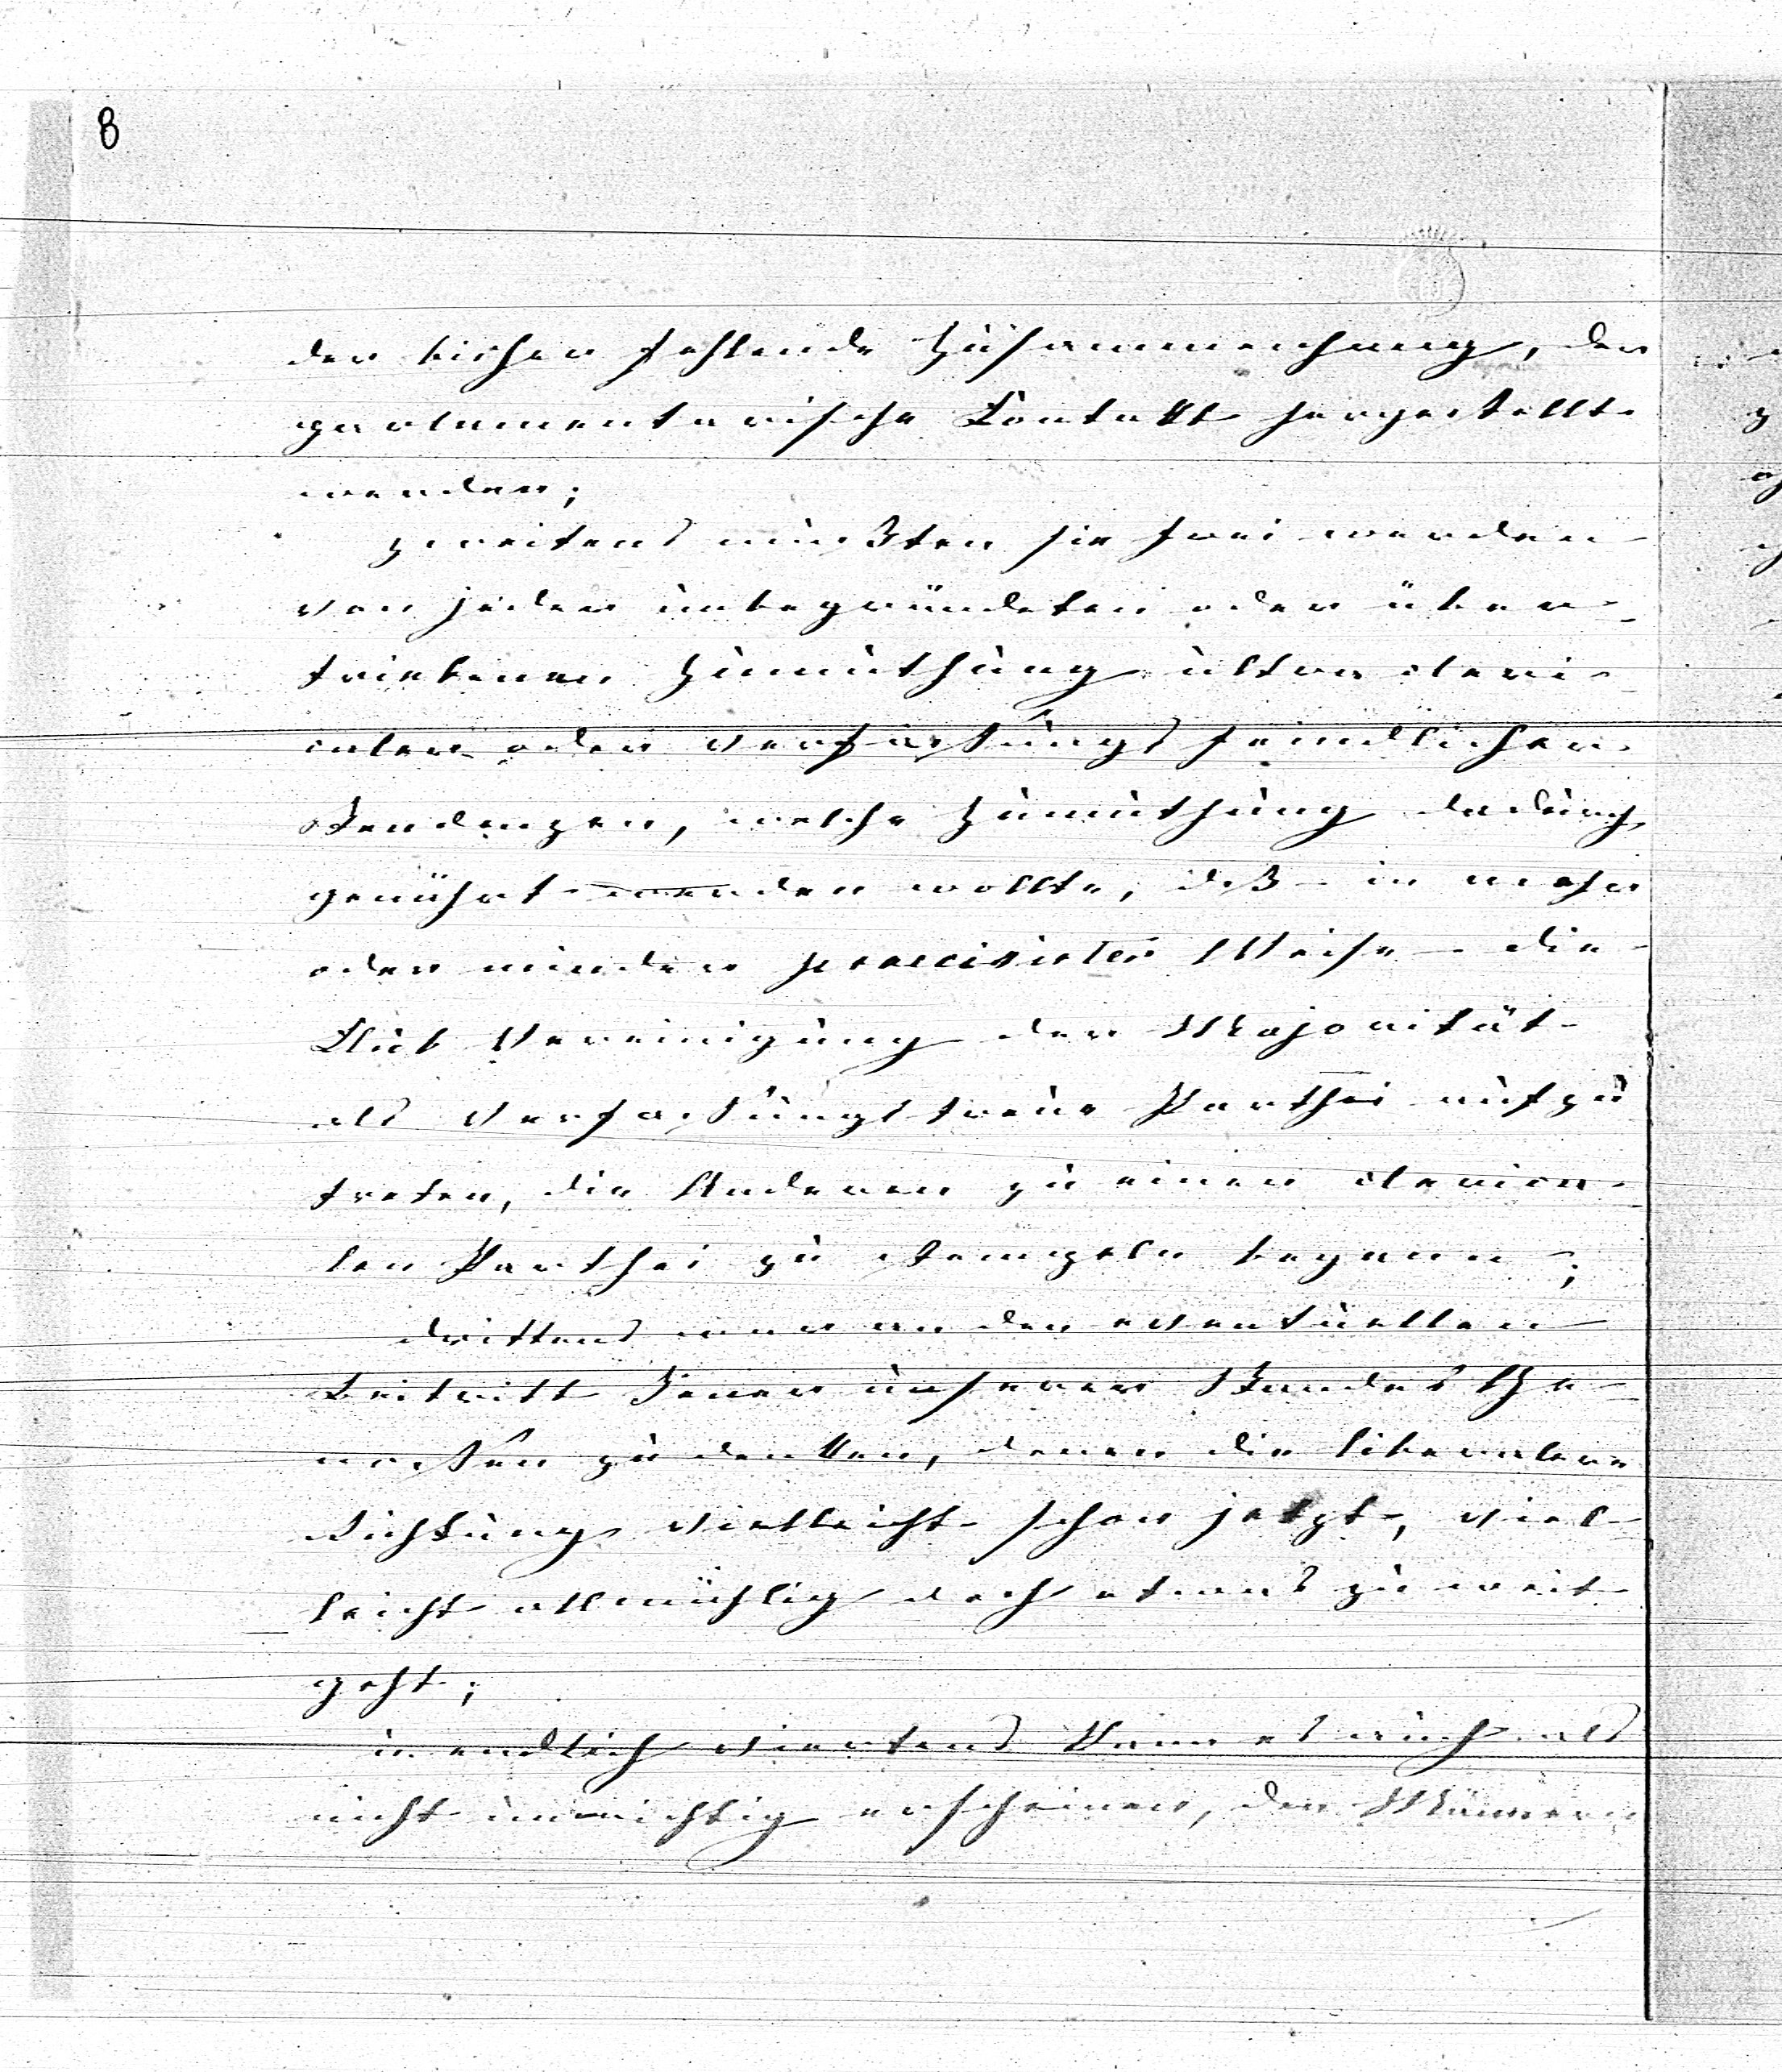 8
der bisher fehlende Zusammenhang, der
parlamentarische Kontakt hergestellt
werden;
zweitens müßten sie frei werden
von jeder unbegründeten oder über-
triebenen Zumuthung ultra cleri-
caler oder verfassungsfeindlicher
Tendenzen, welche Zumuthung dadurch
genährt werden wollte, daß in mehr
oder minder praecisirter Weise die
Club Vereinigung der Majorität
als Verfassungstreue Parthei aufzu
treten, die Anderen zu einer clerica-
len Parthei zu stempeln begann;
drittens war an den eventuellen
Beitritt Jener unserer Standes Ge-
nossen zu denken, denen die liberalere
Richtung vielleicht schon jetzt, viel-
leicht allmählig doch etwas zu weit
geht;
u endlich viertens kann es auch als
nicht unwichtig erscheinen, den Männern